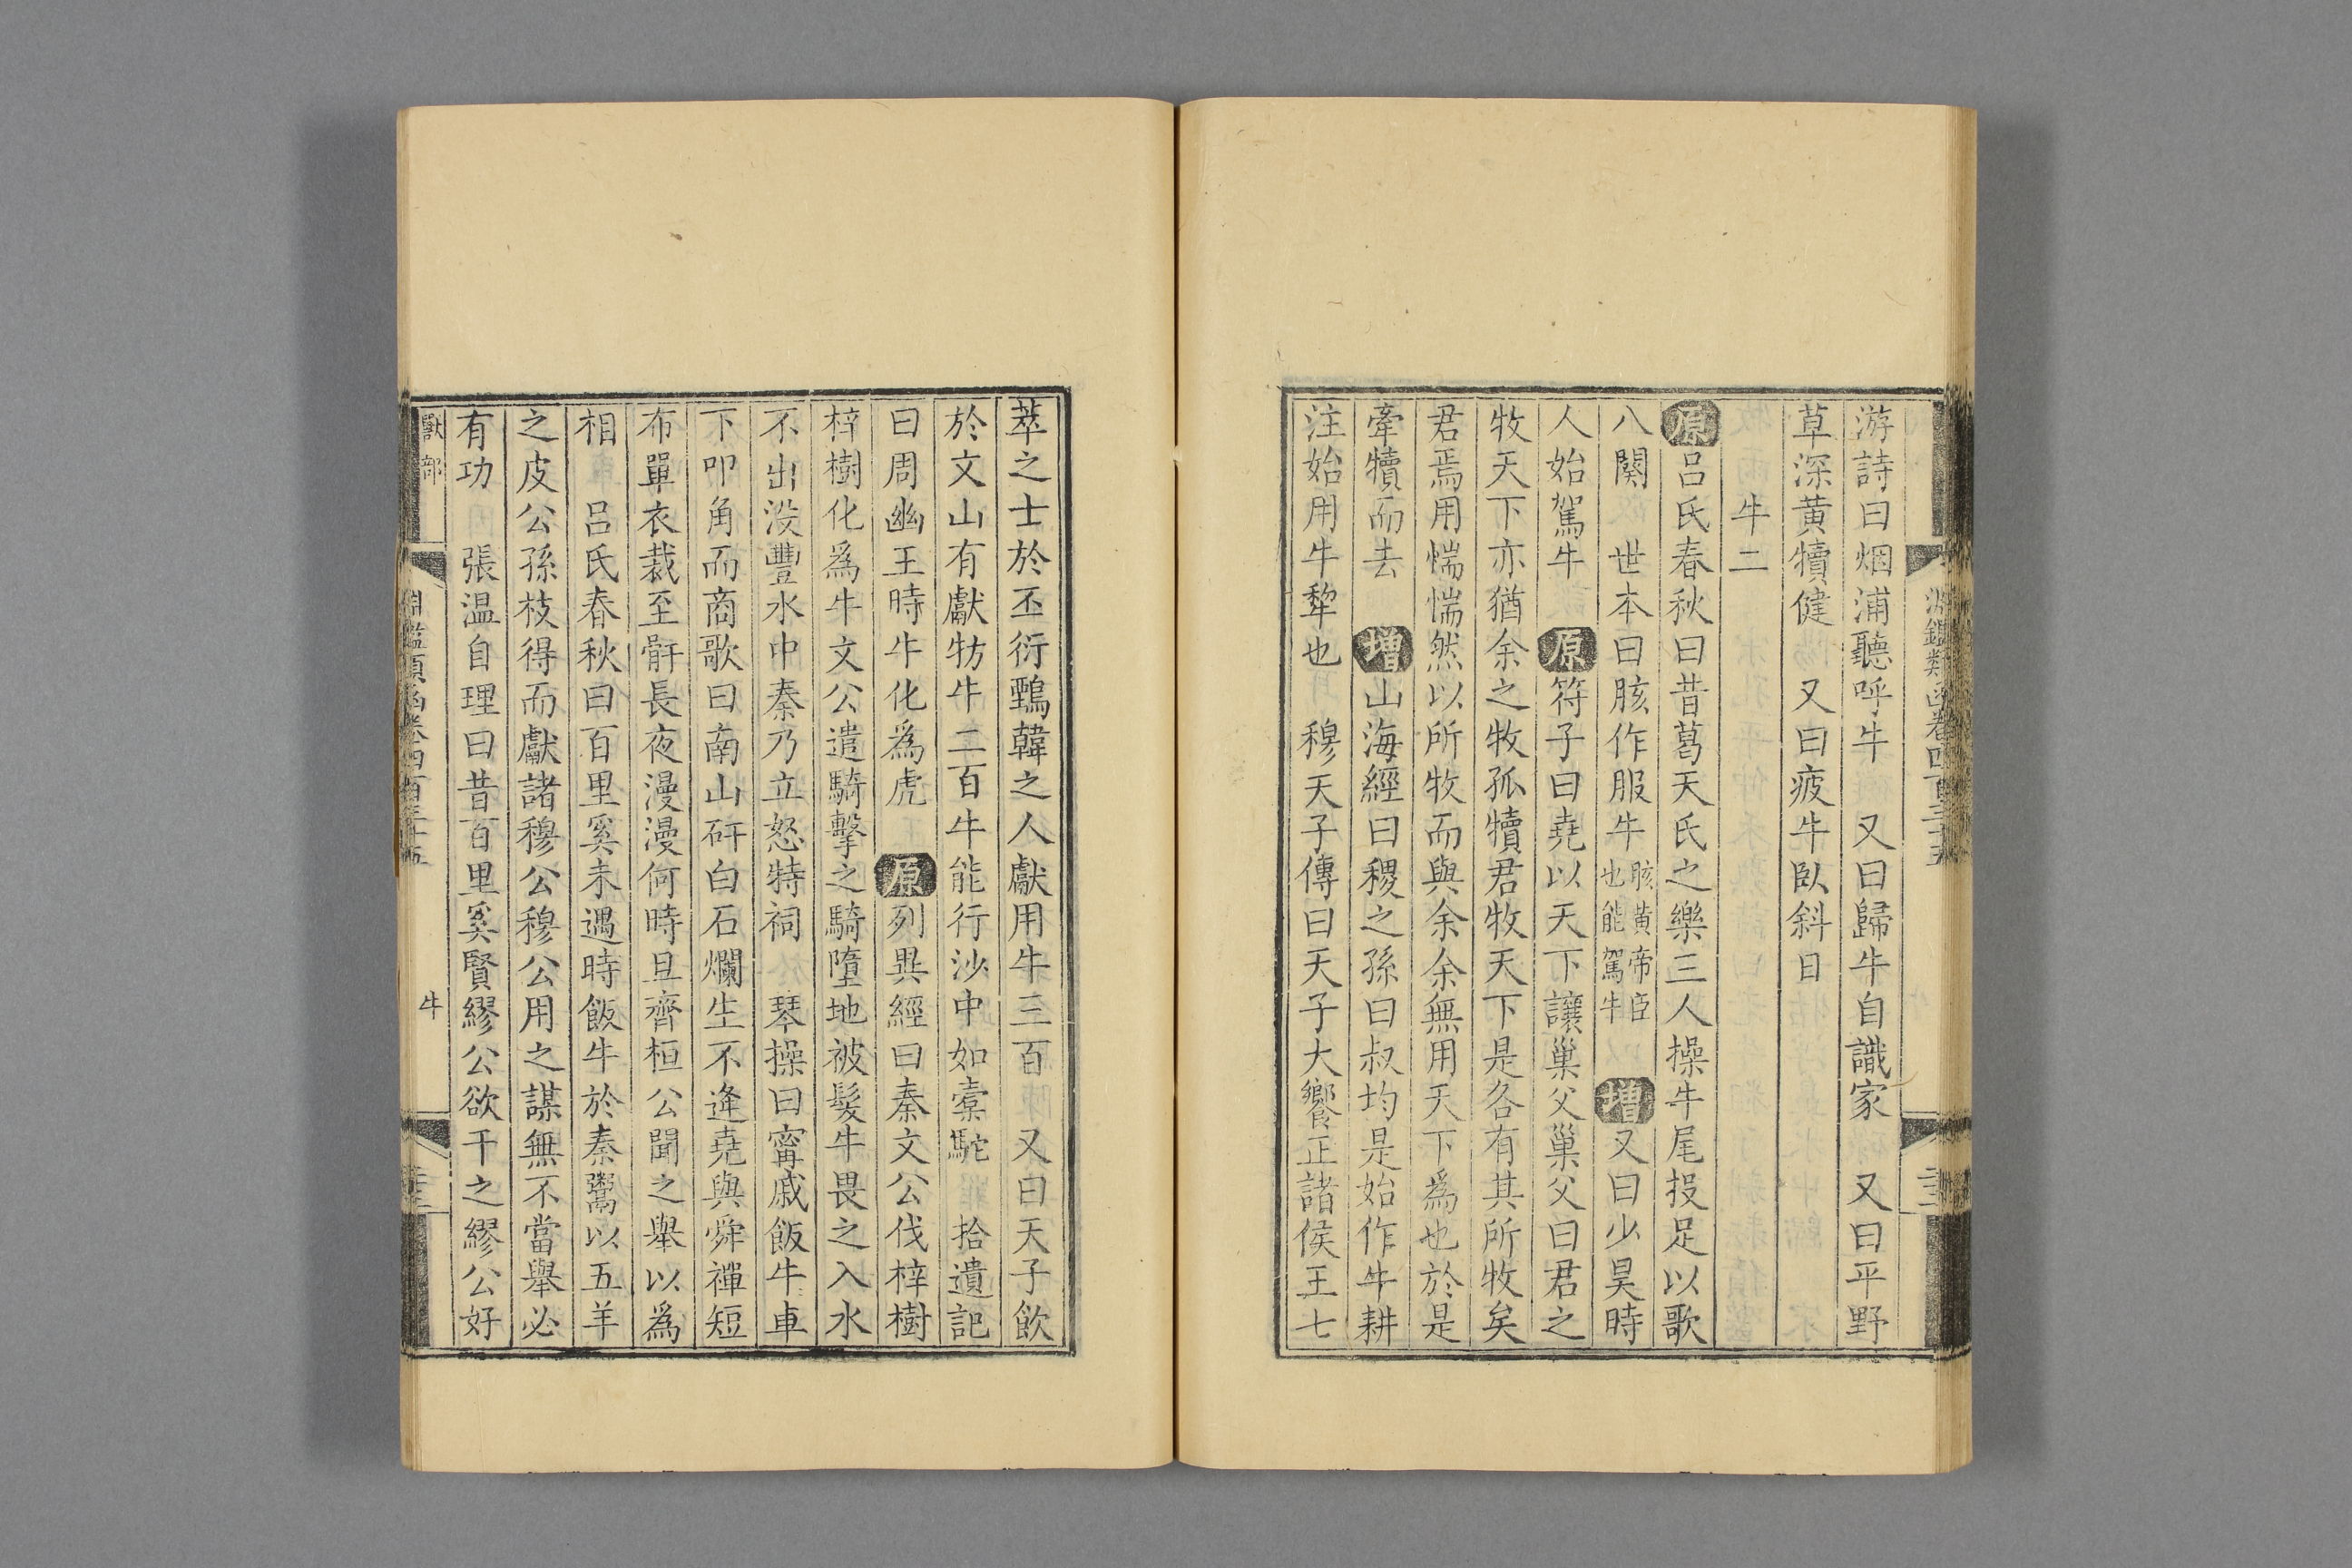 游詩曰烟浦聽呼牛　又曰歸牛自識家　又曰平野
草深黄犢健　又曰疲牛臥斜日
牛二
原呂氏春秋曰昔葛天氏之樂三人操牛尾投足以歌
八闋　世本曰胲作服牛胲黄帝臣也能駕牛　增又曰少昊時
人始駕牛　原符子曰堯以天下讓巢父巢父曰君之
牧天下亦猶余之牧孤犢君牧天下是各有其所牧矣
君焉用惴惴然以所牧而與余余無用天下爲也於是
牽犢而去　增山海經曰稷之孫曰叔均是始作牛耕
注始用牛犂也　穆天子傳曰天子大饗正諸侯王七
萃之士於丕衍鵄韓之人獻用牛三百　又曰天子飲
於文山有獻牥牛二百牛能行沙中如橐駝　拾遺記
曰周幽王時牛化爲虎　原列異經曰秦文公伐梓樹
梓樹化爲牛文公遣騎擊之騎墮地被髮牛畏之入水
不出没豐水中秦乃立怒特祠　琴操曰甯戚飯牛車
下叩角而商歌曰南山矸白石爛生不逢堯與舜禪短
布單衣裁至骭長夜漫漫何時旦齊桓公聞之舉以爲
相　呂氏春秋曰百里奚未遇時飯牛於秦鬻以五羊
之皮公孫枝得而獻諸穆公穆公用之謀無不當舉必
有功　張温自理曰昔百里奚賢繆公欲干之繆公好
獸部　淵鑑類函卷四百三十五　牛